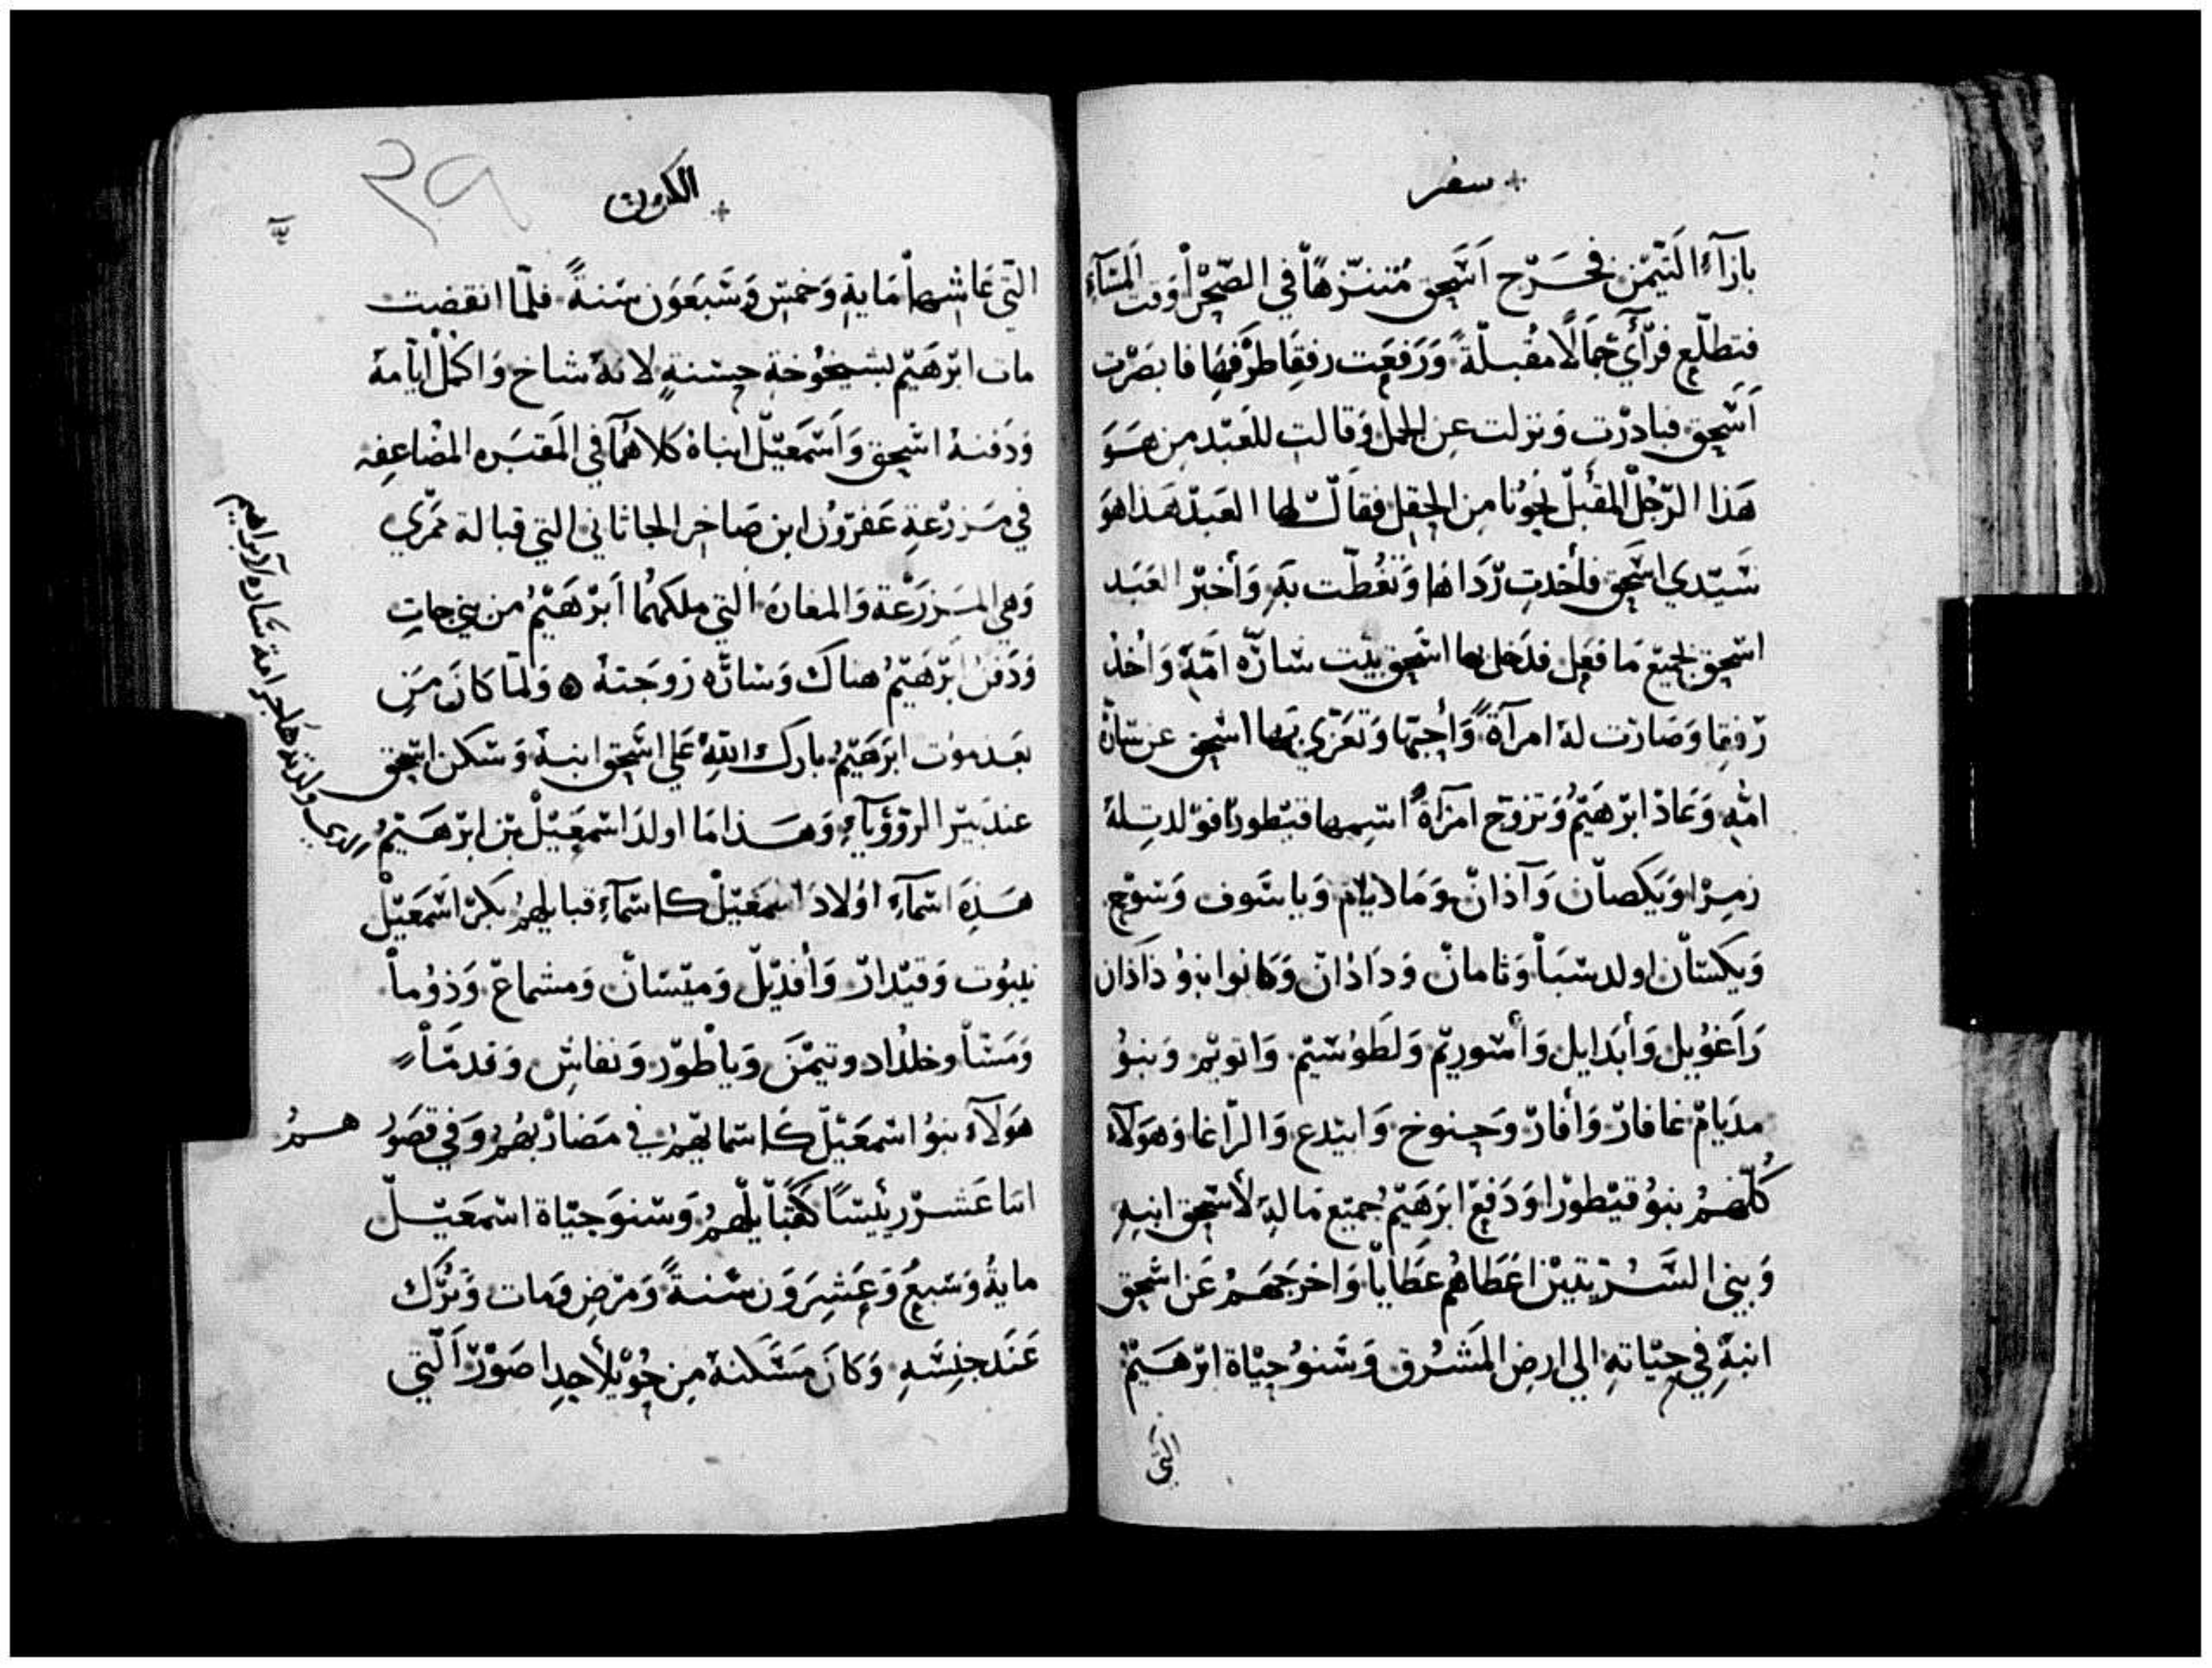 سفر
بازآء التيمن فخرج اسحق متنزهاً في الصحرا وقت المسآء
فتطلع فرأي جمالاً مقبلةً ورفعت رفقا طرفها فابصرت
اسحق فبادرت ونزلت عن الجمل وقالت للعبد من هو
هذا الرجل المقبل نحونا من الحقل فقال لها العبد هذا هو
سيدي اسحق فأخدت رداها وتغطت به وأخبر العبد
اسحق بجميع ما فعل فدخل بها اسحق بيت ساره امه واخذ
رفقا وصارت له امرآةً وأحبها وتعزي بها اسحق عن سارة
امه وعاد ابرهيم وتزوج امرآةً اسمها قيطورا فولدت له
زمرا ويكصان وآذان ومادايام وياسوف وسوح
ويكسان اولد سبا وثامان وداذان وكانوا بنو ذاذان
راغويل وأبدايل وأسوريم ولطوسيم واتويم وبنو
مديام غافار وأفار وحنوخ وابتدع والراغا وهولآء
كلهم بنو قيطورا ودفع ابرهيم جميع ماله لأسحق ابنه
وبني السريتين اعطاهم عطايا واخرجهم عن اسحق
ابنه في حياته الي ارض المشرق وسنو حياة ابرهيم
التي
الكون
٢٩
التي عاشها ماية وخمس وسبعون سنةً فلما انقضت
مات ابرهيم بشيخوخة حسنةٍ لانه شاخ واكمل ايامه
ودفنه اسحق واسمعيل ابناه كلاهما في المقبره المضاعفه
في مزرعة عفرون ابن صاخر الحاثاني التي قبالة ممري
وهي المزرعة والمغارة التي ملكهما ابرهيم من بني حات
ودفن ابرهيم هناك وساره زوجته ولما كان من
بعد موت ابرهيم بارك الله علي اسحق ابنه وسكن اسحق
عند بير الرؤيآء وهذا ما اولد اسمعيل بن ابرهيم
الدي ولدته هاجر امة ساره لابراهيم
هذه اسمآء اولاد اسمعيل كاسمآء قبايلهم بكر اسمعيل
نيبوت وقيدار وأفديل وميسان ومشماع وذوما
ومسا وخلداد وتيمن وياطور ونفاس وقدما
هولآء بنو اسمعيل كاسمايهم في مضاربهم وفي قصورهم
اتنا عشر رئيساً كقبايلهم وسنو حياة اسمعيل
مايةُ وسبعُ وعشرون سنةً ومرض ومات وترك
عند جنسه وكان مسكنه من حويلا حدا صور التي